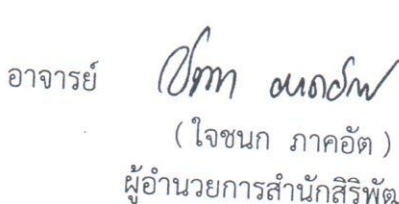 อาจารย์
(ใจชนก ภาคอัต)
ผู้อำนวยการสำนักสิริพัฒ